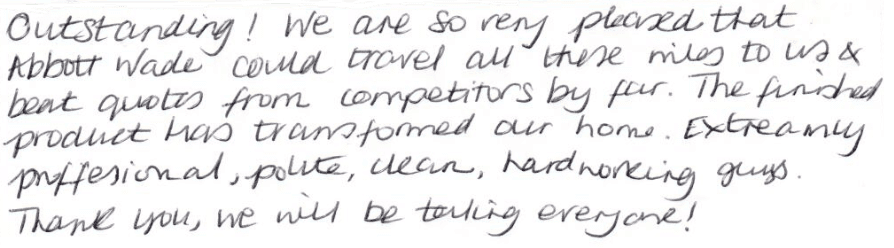 Outstanding! We are so very pleased that
Abbott Wade could travel all these miles to us &
beat quotes from competitors by far. The finished
product has transformed our home. Extreamly
proffesional, polite, clean, hardworking guys.
Thank you, we will be telling everyone!